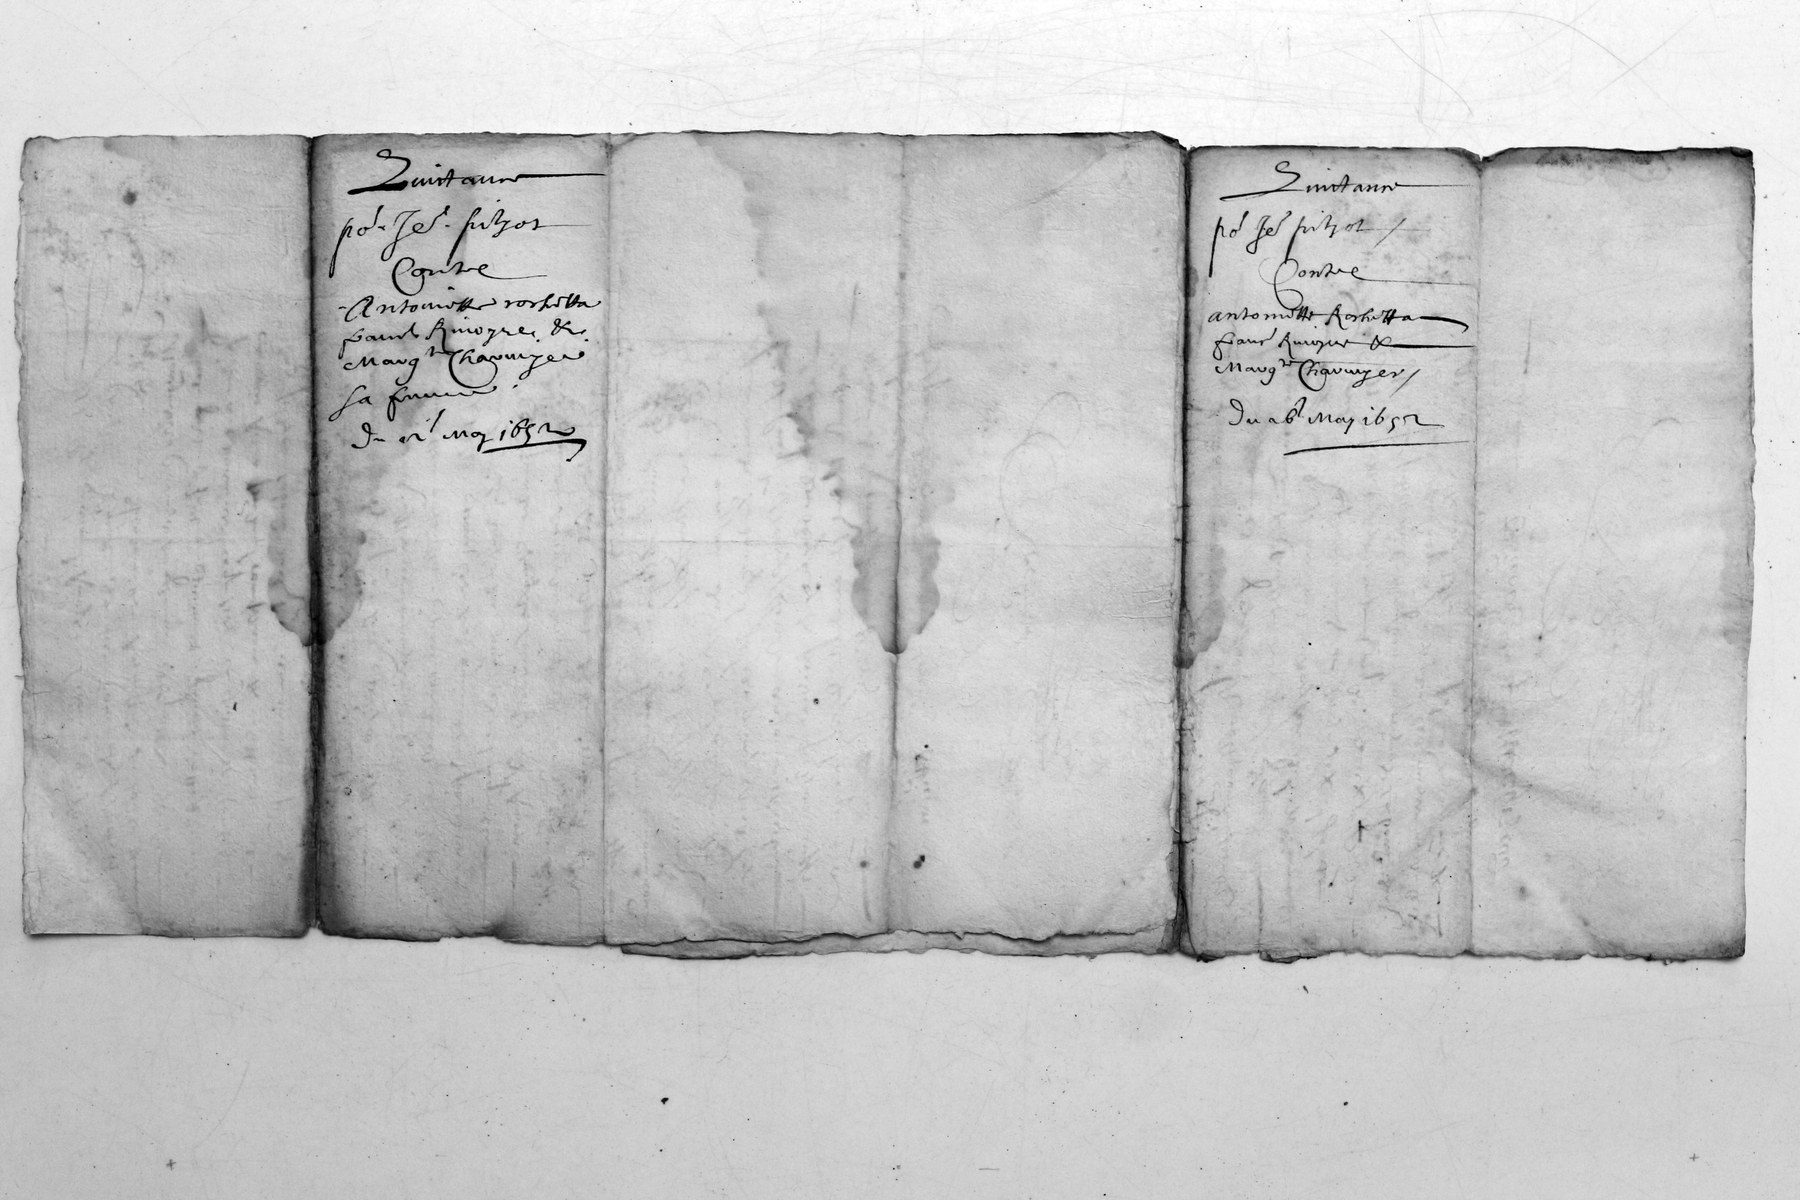 Quictance
po.r Je.n pithot
Contre
Antoinette rochetta
franc &.
Marg.te Chavuyer
Sa femme
Du May 1652
Quictance
po.r Je.n pithot /
Contre
antoinette Rochetta
franc &
Marg.te Chavuyer /
Du 26 May 1652